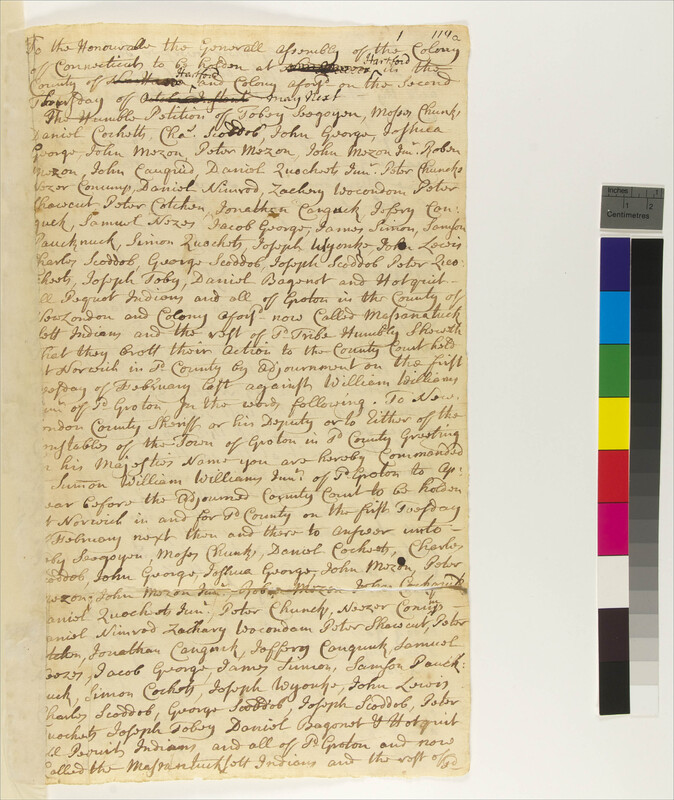 1 119a
To the Honourable the Generall Assembly of the Colony
of Connecticutt to be holden at Hartford in the
County of Hartford and Colony afors.d on the Second
Thursday of May Next
The Humble Petition of Tobey Seogoyen, Moses Chunks,
Daniel Cochetts, Cha.s Scoddob John George, Joshua
George, John Mezon, Peter Mezon, John Mezon Jun.r Roben
Mezon, John Cauquid, Daniel Quochets Jun.r Peter Chuncks
Nezer Conump, Daniel Nimrod, Zachery Wocondom Peter
Shawcut Peter Cotchen, Jonathan Cauquck Jefery Cau:
quck, Samuel Nezes Jacob George, James Simon, Samson
Pauchnuck, Simon Quochets, Joseph Wyonke John Lewis
Charles Scoddob, George Scoddob, Joseph Scoddob Peter Quo:
chets, Joseph Toby, Daniel Bagenot and Hotquit
all Pequot Indians and all of Groton in the County of
New London and Colony afors.d now Called Massanatuck
sett Indians and the rest of s.d Tribe Humbly Sheweth
that they brott their Action to the County Court held
at Norwich in s.d County by Adjournment on the first
Tuesday of February last against William Williams
Jun.r of s.d Groton In the words following. To New.
London County Sheriff or his Deputy or to Either of the
Constables of the Town of Groton in s.d County Greeting
in his Majesties Name you are hereby Commanded
to Sumon William Williams Jun.r of s.d Groton to Ap:
pear before the Adjourned County Court to be holden
at Norwich in and for s.d County on the first Tuesday
of February next then and there to answer unto
Toby Seogoyen, Moses Chunks, Daniel Cochets, Charles
Scoddob, John George, Joshua George, John Mezon, Peter
Mezon, John Mezon Jun.r Robe Mezon John Cauhquid
Daniel Quochets Jun.r Peter Chunck, Neezer Conump
Daniel Nimrod Zachary Wocondam Peter Shawcut, Peter
Cotchen, Jonathan Cauquck, Jafferry Cauquuck, Samuel
Neezes, Jacob George James Simon, Samson Pauck:
nuck, Simon Cochets, Joseph Wyonke, John Lewis
Charles Scoddob, George Scoddob, Joseph Scoddob, Peter
Quochets Joseph Tobey Daniel Bagonet & Hotquit
all Pequit Indians and all of s.d Groton and now
Called the Massantucksett Indians and the rest of s.d